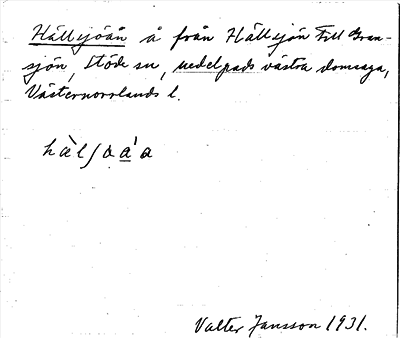 Hällsjöån å från Hällsjön till Gran-
sjön, Stöde sn, Medelpads västra domsaga,
Västernorrlands l.
Valter Jansson 1931.